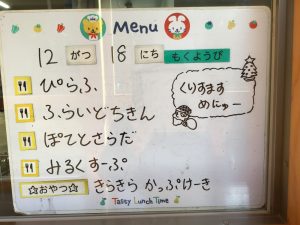 Menu
12 がつ 18 にち もくようび
くりすます
めにゅー
ぴらふ
ふらいどちきん
ぽてとさらだ
みるくすーぷ
☆おやつ☆ きらきら かっぷけーき
Tasty Lunch Time